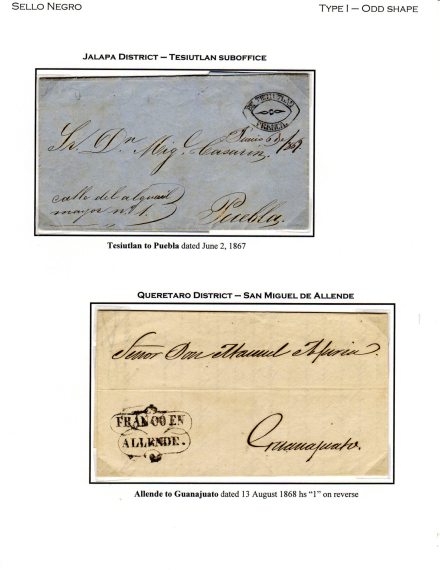 SELLO NEGRO
TYPE I – ODD SHAPE
JALAPA DISTRICT – TESIUTLAN SUBOFFICE
PUEBLA.
Junio 6 de /867
Sr. Dn. Mig. Casarin.
calle del alguacil
mayor nº 1.
Puebla.
Tesiutlan to Puebla dated June 2, 1867
QUERETARO DISTRICT – SAN MIGUEL DE ALLENDE
Señor Don Manuel
FRANCO EN
ALLENDE.
Guanajuato.
Allende to Guanajuato dated 13 August 1868 hs “1” on reverse